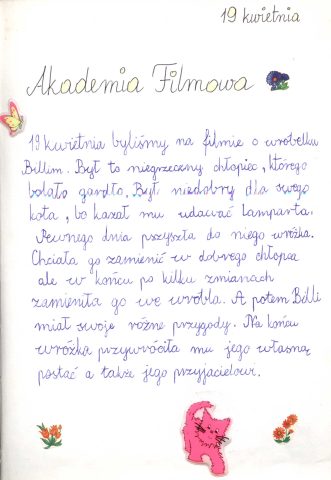 19 kwietnia
Akademia Filmowa
19 kwietnia byliśmy na filmie o wróbelku
Billim. Był to niegrzeczny chłopiec, którego
bolało gardło. Był niedobry dla swego
kota, bo kazał mu udawać lamparta.
Pewnego dnia przyszła do niego wróżka.
Chciała go zamienić w dobrego chłopca
ale w końcu po kilku zmianach
zamieniła go we wróbla. A potem Billi
miał swoje różne przygody. Na końcu
wróżka przywróciła mu jego własną
postać a także jego przyjacielowi.